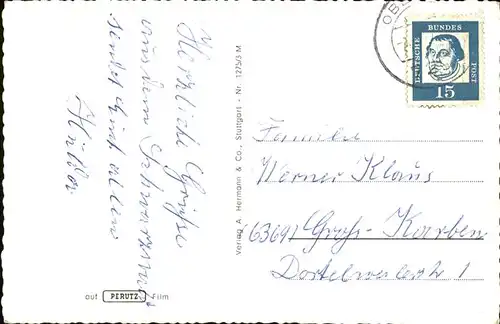 Herzliche Grüße
aus dem Schwarzwald
sendet Euch allen
OB
DEUTSCHE BUNDES POST
15
Verlag A. Herrmann & Co., Stuttgart - Nr. 1275/3 M
Familie
Werner Klaus
6369 Groß-Karben
Dortelweilerstr 1
auf PERUTZ Film